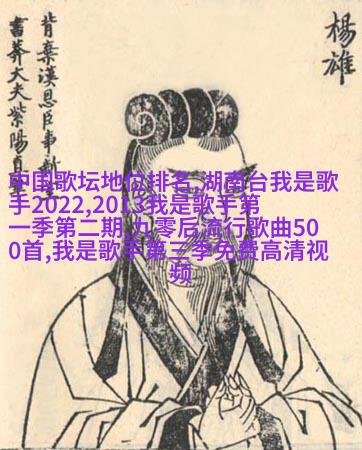 楊雄
背棄漢恩臣事新
書莽大夫紫陽
中国歌坛地位排名,湖南台我是歌
手2022,2013我是歌手第
一季第二期,九零后流行歌曲50
0首,我是歌手第三季免费高清视
频